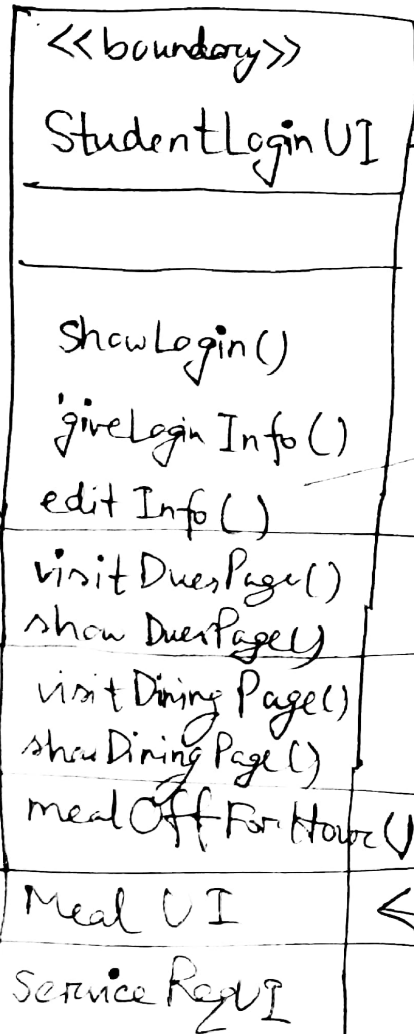 <<boundary>>
StudentLogin UI
showLogin()
giveLogin Info()
edit Info()
visit DuesPage()
show DuesPage()
visit Dining Page()
show Dining Page()
meal Off For Hour()
Meal UI
Service Req UI